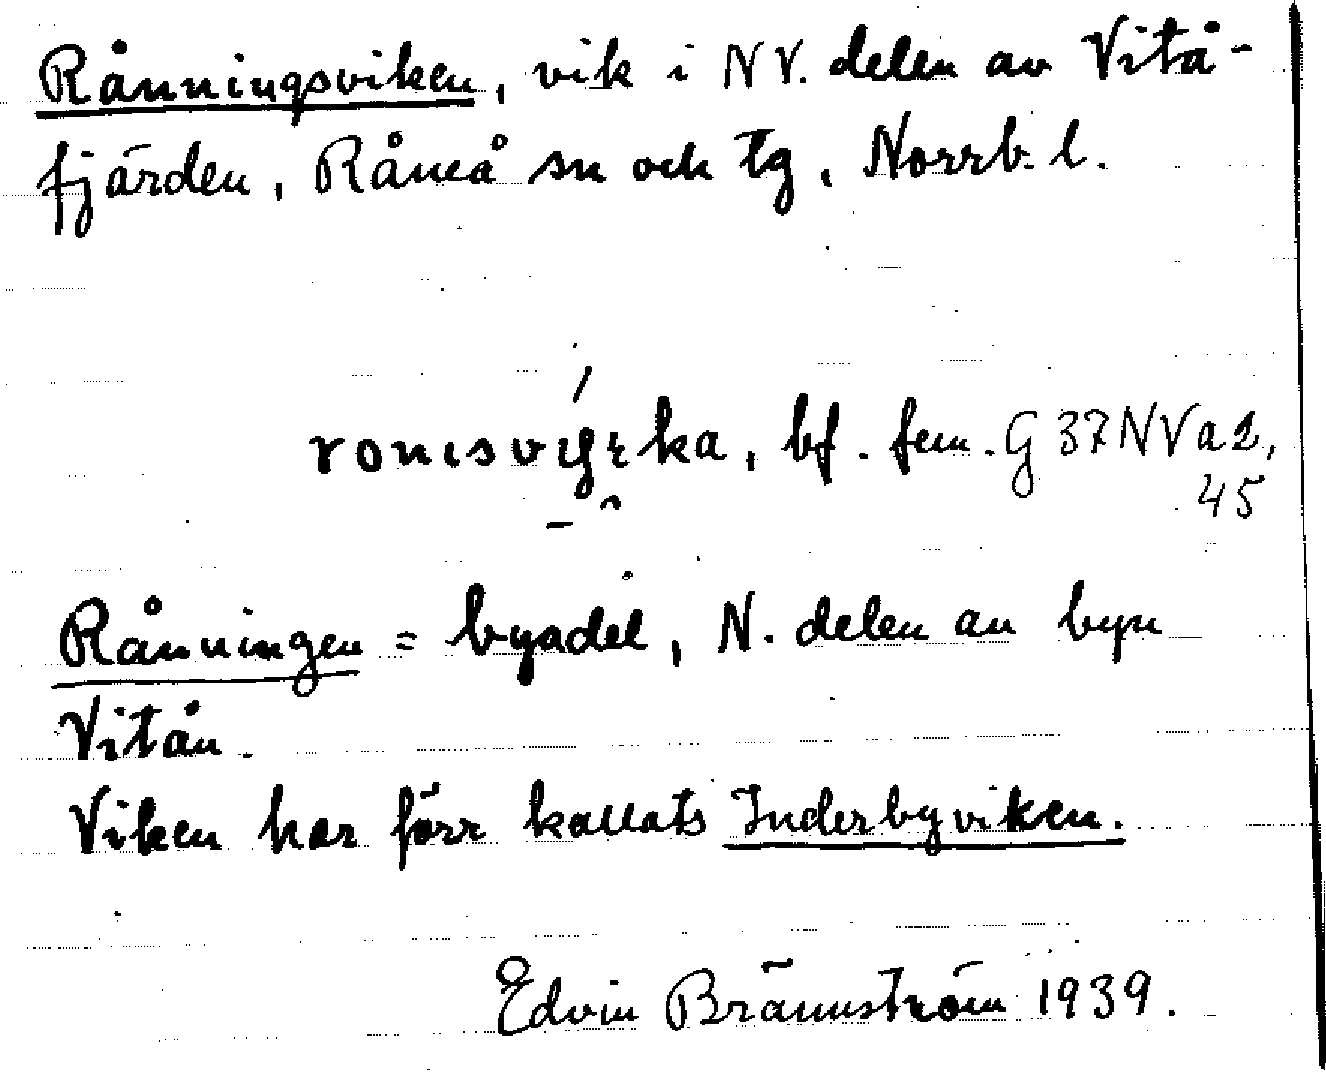 Rånningsviken, vik i NV. delen av Vitå-
fjärden, Råneå sn och tg, Norrb. l.
bf. fem. G 37 NV a 2,
45
Rånningen = byadel, N. delen av byn
Vitån.
Viken har förr kallats Inderbyviken.
Edvin Brännström 1939.